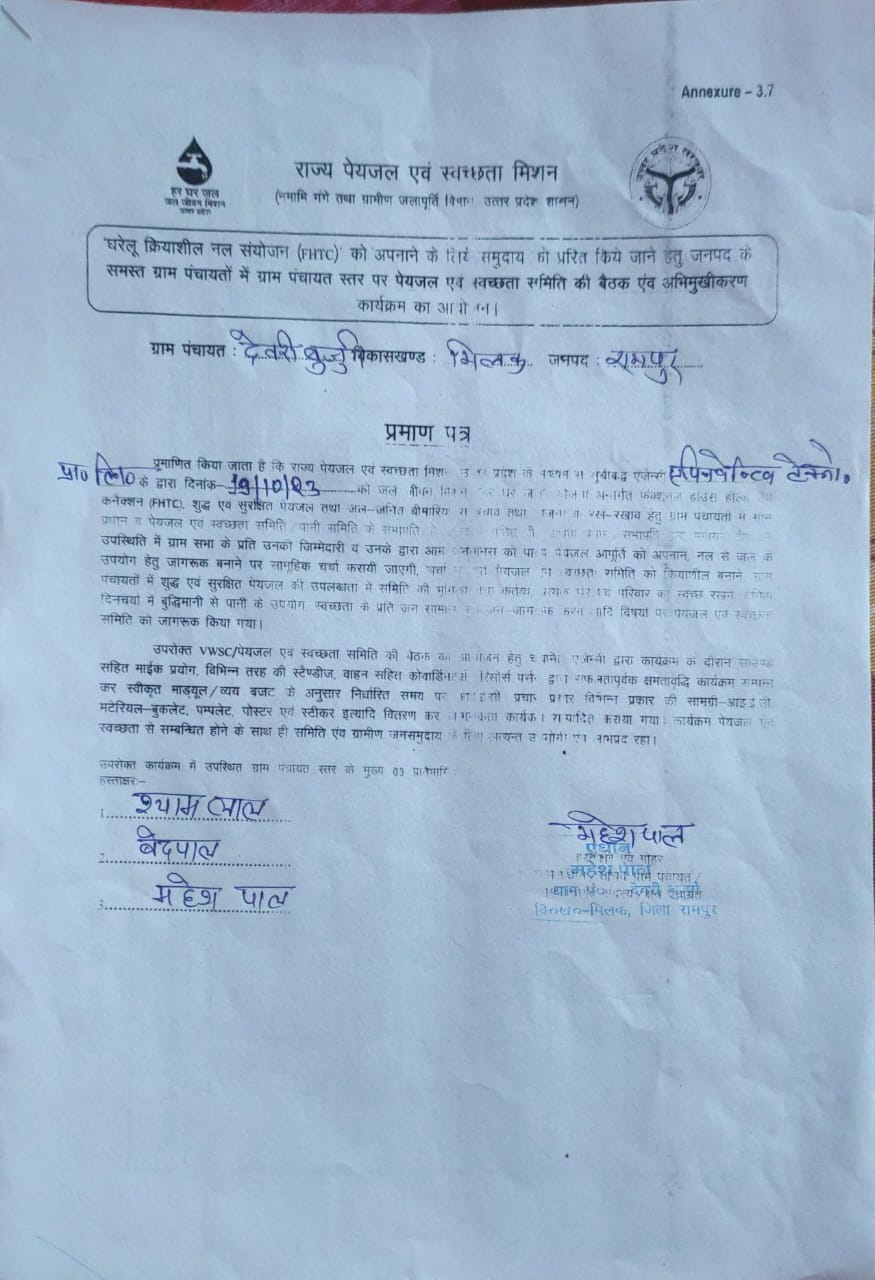 Annexure – 3.7
हर घर जल
जल जीवन मिशन
उत्तर प्रदेश
राज्य पेयजल एवं स्वच्छता मिशन
(नमामि गंगे तथा ग्रामीण जलापूर्ति विभाग, उत्तर प्रदेश शासन)
उत्तर प्रदेश सरकार
'घरेलू क्रियाशील नल संयोजन (FHTC)' को अपनाने के लिये समुदाय को प्ररित किये जाने हेतु जनपद के
समस्त ग्राम पंचायतों में ग्राम पंचायत स्तर पर पेयजल एवं स्वच्छता समिति की बैठक एंव अभिमुखीकरण
कार्यक्रम का आयोजन।
ग्राम पंचायत : देवरी बुजु विकासखण्ड : मिलक जनपद : रामपुर
प्रमाण पत्र
प्रमाणित किया जाता है कि राज्य पेयजल एवं स्वच्छता मिशन प्रदेश के एजेन्सी एपिनवेन्टिव टेक्नो०
प्रा० लि० के द्वारा दिनांक- 19/10/23 को जल जीवन मिशन हर घर जल योजना अन्तर्गत फंक्शनल हाउस होल्ड टैप
कनेक्शन (FHTC), शुद्ध एवं सुरक्षित पेयजल तथा जल–जनित बीमारियों बचाव तथा रख–रखाव हेतु ग्राम पंचायतों में ग्राम
प्रधान व पेयजल एवं स्वच्छता समिति/पानी समिति के सभापति
उपस्थिति में ग्राम सभा के प्रति उनकी जिम्मेदारी व उनके द्वारा आम जनमानस को पेयजल आपूर्ति को अपनाने, नल से जल के
उपयोग हेतु जागरूक बनाने पर सामूहिक चर्चा करायी जाएगी, चर्चा पेयजल एवं स्वच्छता समिति को क्रियाशील बनाने, ग्राम
पंचायतों में शुद्ध एवं सुरक्षित पेयजल की उपलब्धता में समिति की भूमिका कर्तव्य, प्रत्येक घर एवं परिवार को स्वच्छ रखने,
दिनचर्या में बुद्धिमानी से पानी के उपयोग, स्वच्छता के प्रति जन सामान्य जन–जागरूक करने आदि विषयों पर पेयजल एवं स्वच्छता
समिति को जागरूक किया गया।
उपरोक्त VWSC/पेयजल एवं स्वच्छता समिति की बैठक का आयोजन हेतु एजेन्सी द्वारा कार्यक्रम के दौरान साउण्ड
सहित माईक प्रयोग, विभिन्न तरह की स्टैण्डीज, वाहन सहित रिसोर्स पर्सन द्वारा सफलतापूर्वक क्षमतावृद्धि कार्यक्रम सम्पन्न
कर स्वीकृत माड्यूल/व्यय बजट के अनुसार निर्धारित समय पर प्रचार प्रसार विभिन्न प्रकार की सामग्री–आई.ई.सी
मटेरियल–बुकलेट, पम्पलेट, पोस्टर एवं स्टीकर इत्यादि वितरण कर कार्यक्रम सम्पादित कराया गया। कार्यक्रम पेयजल एवं
स्वच्छता से सम्बन्धित होने के साथ ही समिति एंव ग्रामीण जनसमुदाय के लिए अत्यन्त उपयोगी एवं लाभप्रद रहा।
उपरोक्त कार्यक्रम में उपस्थित ग्राम पंचायत स्तर के मुख्य 03
हस्ताक्षर:–
1. श्यामलाल
2. बेदपाल
3. महेश पाल
महेश पाल
प्रधान
हस्ताक्षर एवं मोहर
महेश पाल
ग्राम पंचायत/
वि०ख०–मिलक, जिला रामपुर